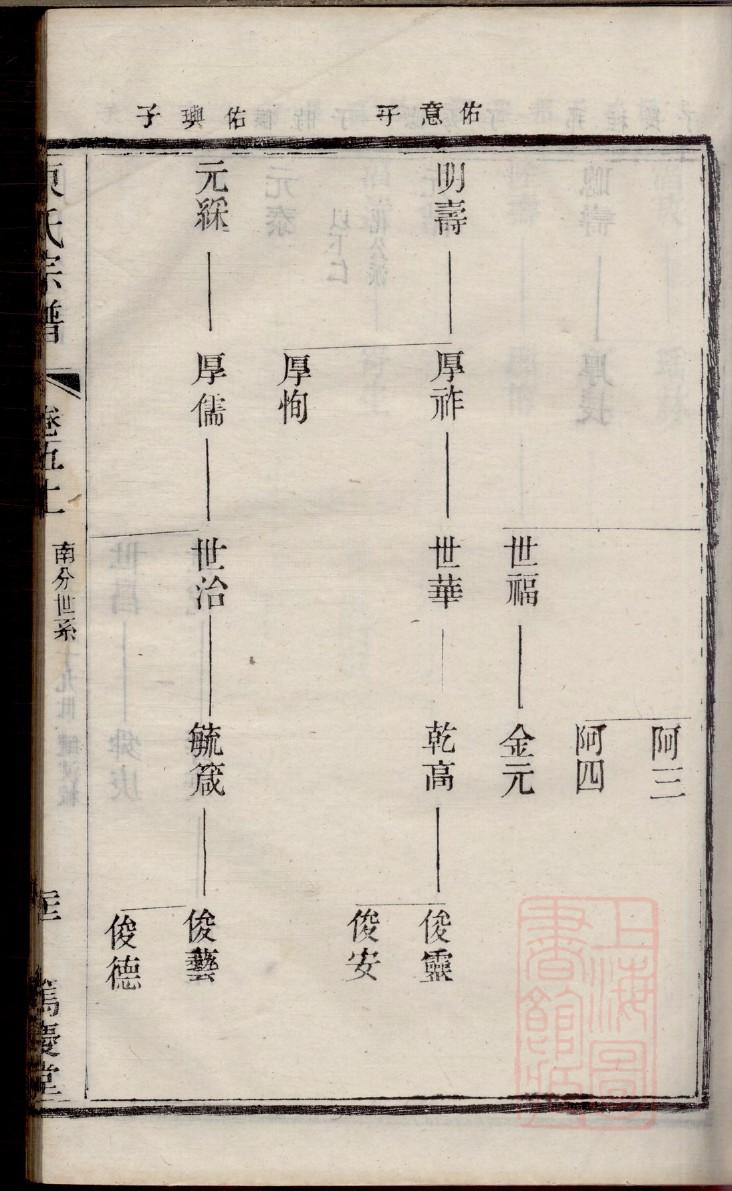 佑意子
佑璵子
阿三
阿四
世福
金元
明壽
厚祚
世華
乾高
俊靈
俊安
厚恂
元綵
厚儒
世治
毓箴
俊藝
俊德
氏宗譜
卷五上
南分世系
篤慶堂
上海圖書館藏